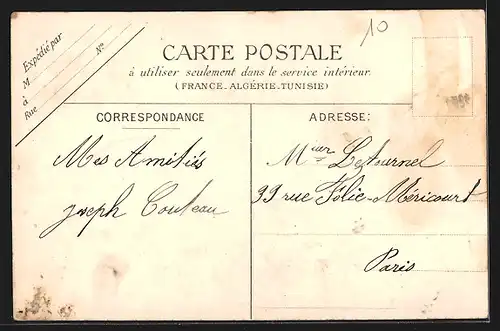 10
Expédié par
M
à
Rue
N°
CARTE POSTALE
à utiliser seulement dans le service intérieur.
(FRANCE-ALGÉRIE-TUNISIE)
CORRESPONDANCE
Mes Amitiés
Joseph Couteau
ADRESSE:
Mr Letournel
99 rue Folie-Méricourt
Paris